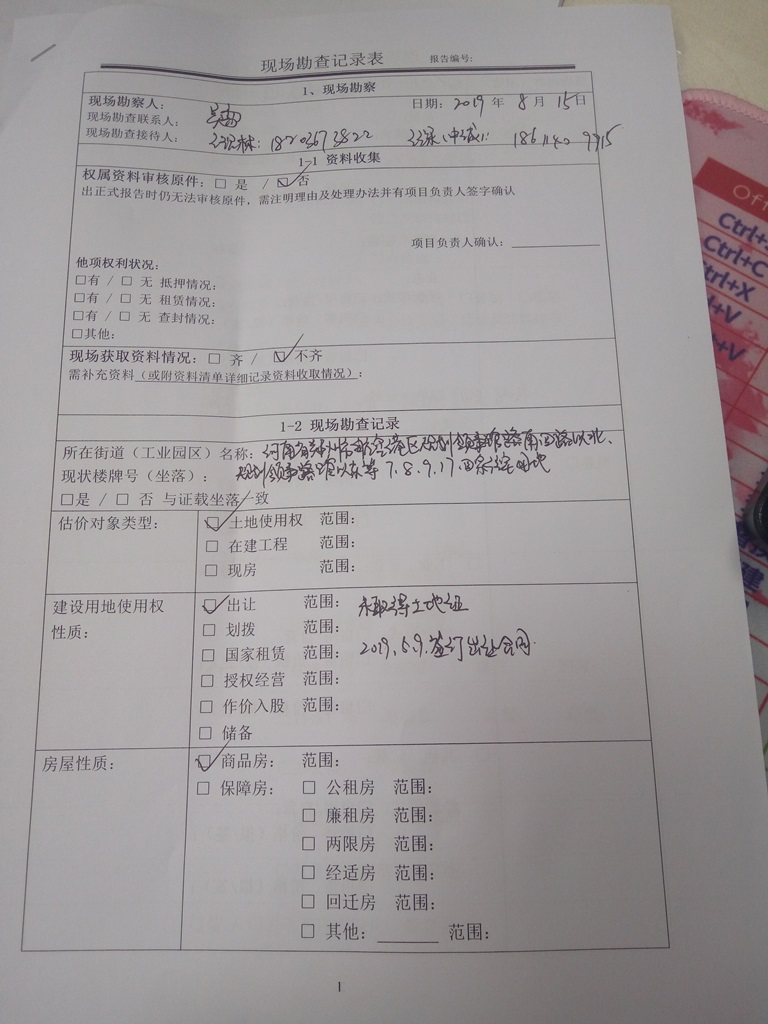 现场勘查记录表 报告编号:
1、现场勘察
现场勘察人: 日期: 2019 年 8 月 15日
现场勘查联系人:
现场勘查接待人: 18203673822 186 1140 9915
1-1 资料收集
权属资料审核原件: □ 是 / ☑ 否
出正式报告时仍无法审核原件，需注明理由及处理办法并有项目负责人签字确认
项目负责人确认: ________
他项权利状况:
□有 / □ 无 抵押情况:
□有 / □ 无 租赁情况:
□有 / □ 无 查封情况:
□其他:
现场获取资料情况: □ 齐 / ☑ 不齐
需补充资料（或附资料清单详细记录资料收取情况）:
1-2 现场勘查记录
所在街道（工业园区）名称: 河南省郑州市航空港区规划领事馆路南 路以北、
现状楼牌号（坐落）: 规划领事馆路以东等 7.8.9.17 宗住宅用地
□是 / □ 否 与证载坐落一致
估价对象类型: ☑ 土地使用权 范围:
□ 在建工程 范围:
□ 现房 范围:
建设用地使用权 ☑ 出让 范围: 未取得土地证
性质: □ 划拨 范围:
□ 国家租赁 范围: 2019.6.9.签订出让合同.
□ 授权经营 范围:
□ 作价入股 范围:
□ 储备
房屋性质: ☑ 商品房: 范围:
□ 保障房: □ 公租房 范围:
□ 廉租房 范围:
□ 两限房 范围:
□ 经适房 范围:
□ 回迁房 范围:
□ 其他: ______ 范围:
1
Off
Ctrl+
Ctrl+C
trl+X
+V
+V